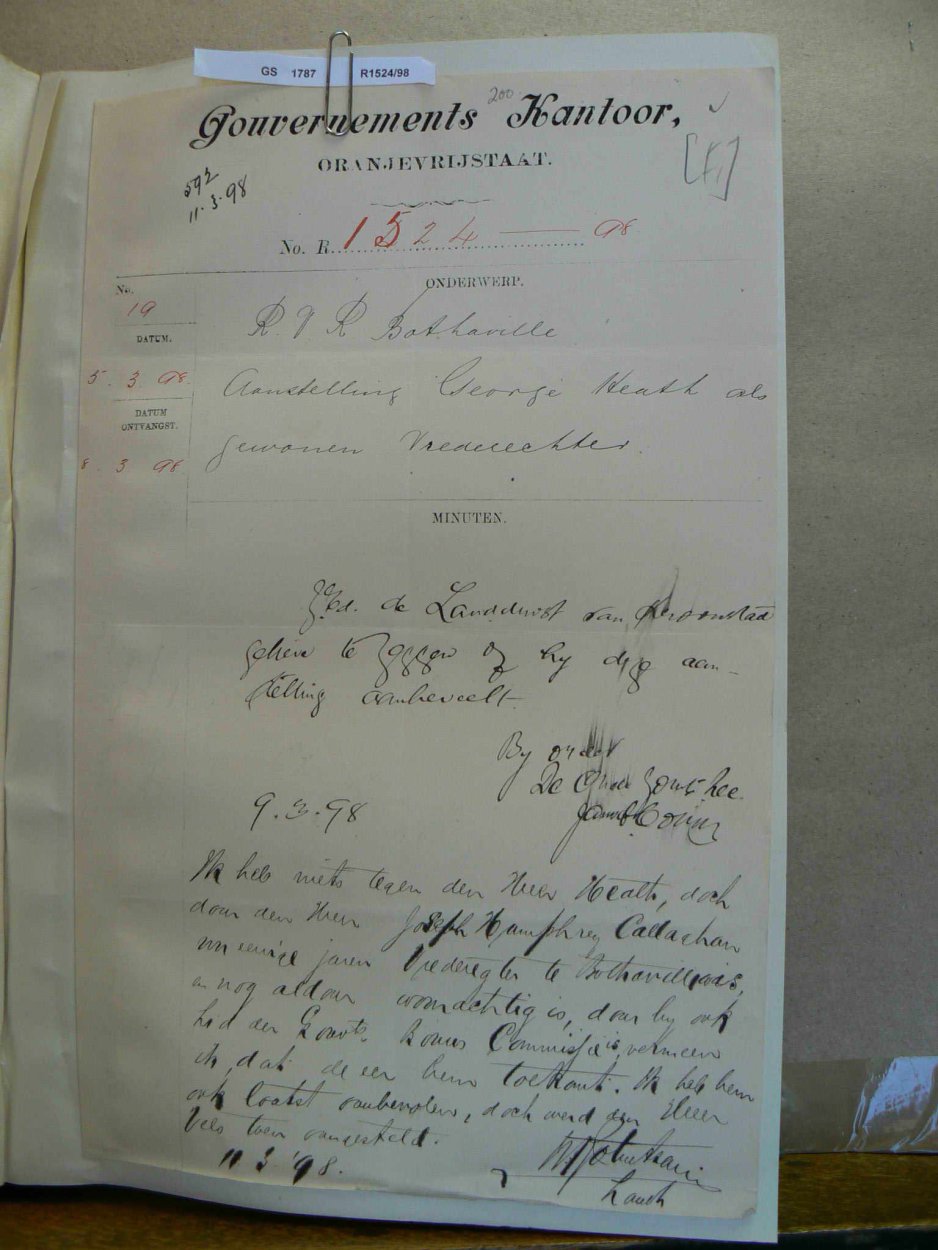 GS 1787 R1524/98
200
Gouvernements Kantoor,
ORANJEVRIJSTAAT.
592
11.3.98
No. R. 1524 — 98
No.
19
ONDERWERP.
R. V R Bothaville
DATUM.
5. 3. 98.
Aanstelling George Heath als
DATUM
ONTVANGST.
8. 3 98
gewonen Vrederechter.
MINUTEN.
de Landdrost van Kroonstad
gelieve te zeggen of hy deze aan-
stelling aanbeveelt.
By order
De Gouvts
9.3.98
Ik heb niets tegen den Heer Heath, doch
daar den Heer Joseph Humphrey Callaghan
nu eenige jaren Vrederegter te Bothaville was,
en nog aldaar woonachtig is, daar hy ook
lid der Gouvts. Commissie is, vermeen
ik, dat de eer hem toekomt. Ik heb hem
ook laatst aanbevolen, doch werd den Heer
toen aangesteld.
11 3 '98.
Landt